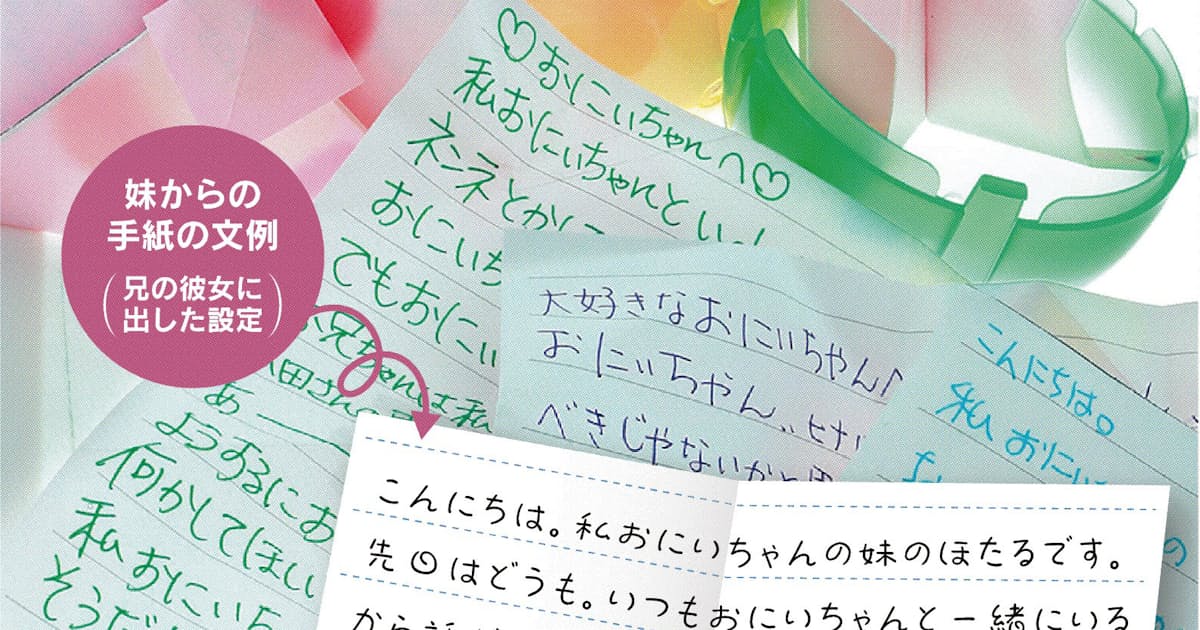 ♡おにぃちゃんへ♡
私おにぃちゃんと
ネンネとかに
おにぃち
でもおにぃ
妹からの
手紙の文例
(兄の彼女に
出した設定)
お兄ちゃんは私
田さん
あー
ようするにお
何かしてほしい
私おにいち
そうだ
大好きなおにぃちゃん♪
おにぃちゃん
べきじゃないかと
こんにちは。
私おにぃ
こんにちは。私おにいちゃんの妹のほたるです。
先日はどうも。いつもおにいちゃんと一緒にいる
から